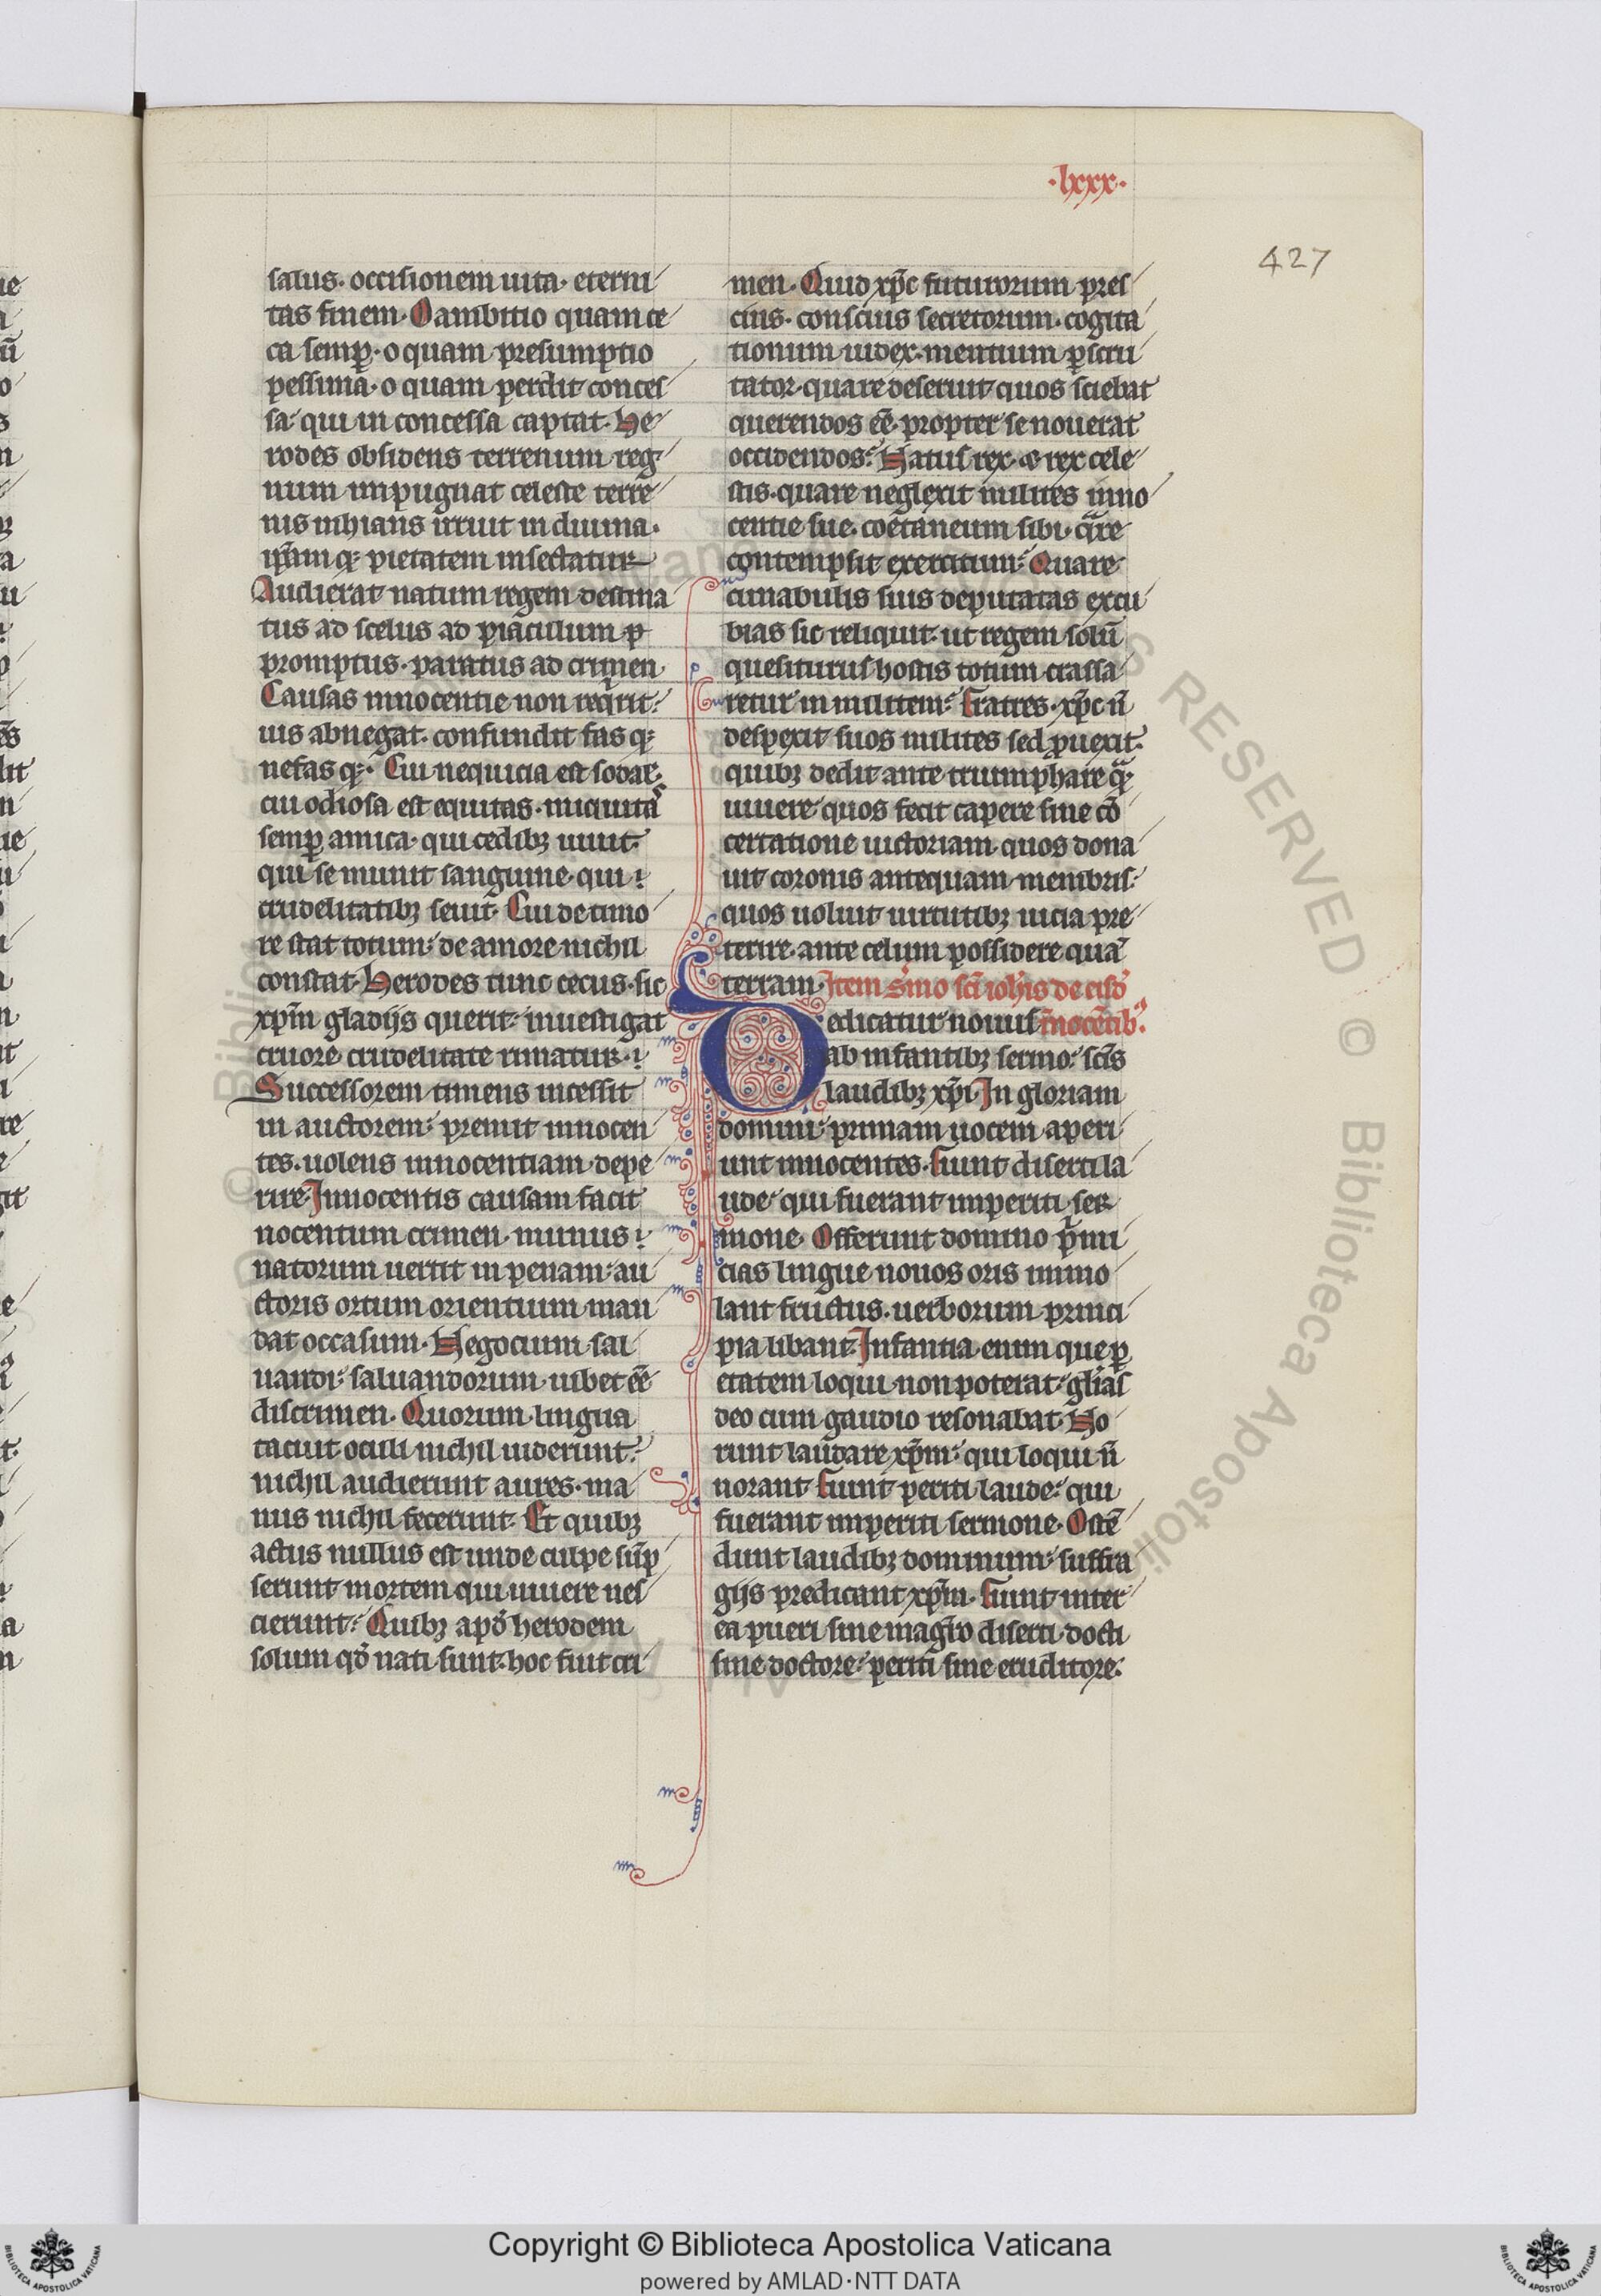 ·lxxx·
427
salus. occisionem uita. eterni
tas finem. O ambitio quam ce
ca semꝑ. o quam presumptio
pessima. o quam perdit conces
sa qui in concessa captat. He
rodes obsidens terrenum reg
num impugnat celeste terre
nis inhians irruit in diuina.
ip̄am qꝫ pietatem insectatur
Audierat natum regem destina
tus ad scelus ad piaculum ꝓ
promptus. paratus ad crimen
Causas innocentie non reqͥrit.
uis abnegat. confundit fas qꝫ
nefas qꝫ. Cui nequicia est sodał.
cui odiosa est equitas. iniquitaˢ
semꝑ amica. qui cedibꝫ uiuit.
qui se munit sanguine. qui
crudelitatibꝫ seuit. Cui de timo
re stat totum. de amore nichil
constat. Herodes tunc cecus. sic
xp̄m gladijs querit. inuestigat
cruore. crudelitate rimatur.
Successorem timens incessit
in auctorem. premit innocen
tes. uolens innocentiam depe
rire. Innocentis causam facit
nocentum crimen. munus
natorum uertit in penam. au
ctoris ortum orientium man
dat occasum. Negocium sal
uandi. saluandorum iubet eē
discrimen. Quorum lingua
tacuit oculi nichil uiderunt.
nichil audierunt aures. ma
nus nichil fecerunt. Et quibꝫ
actus nullus est unde culpe sūp
serunt mortem qui uiuere nes
cierunt. Quibꝫ apᵈ herodem
solum qᵈ nati sunt. hoc fuit cri
men. Quid xp̄c futurorum pres
cius. conscius secretorum. cogita
tionum iudex. mentium ꝑscru
tator. quare deseruit quos sciebat
querendos eē. propter se nouerat
occidendos. Natus rex. & rex cele
stis. quare neglexit milites inno
centie sue. coetaneum sibi. qᵃre
contempsit exercitum. Quare
cunabulis suis deputatas excu
bias sic reliquit. ut regem solū
quesiturus hostis totum crassa
retur in militem. Fratres. xp̄c n̄
despexit suos milites sed ꝓuexit.
quibꝫ dedit ante triumphare qᵃ
uiuere quos fecit capere sine cō
certatione uictoriam. quos dona
uit coronis antequam membris.
quos uoluit uirtutibꝫ uicia pre
terire. ante celum possidere quā
terram. Item s̄mo sc̄i ioh̄is de eisd̄
Dedicatur nouus innocētibꝫ.
ab infantibꝫ sermo. sc̄is
laudibꝫ xp̄i. In gloriam
domini. primam uocem aperi
unt innocentes. Fiunt diserti la
ude. qui fuerant imperiti ser
mone. Offerunt domino pͥmi
cias lingue nouos oris immo
lant fructus. uerborum princi
pia libant. Infantia enim que ꝑ
etatem loqui non poterat. glīas
deo cum gaudio resonabat. No
runt laudare xp̄m. qui loqui n̄
norant. Fiunt periti laude. qui
fuerant imperiti sermone. Ostē
dunt laudibꝫ dominum. suffra
gijs predicant xp̄m. Fiunt inter
ea pueri sine mag̅ro diserti. docti
sine doctore. periti sine eruditore.
Copyright © Biblioteca Apostolica Vaticana
powered by AMLAD·NTT DATA